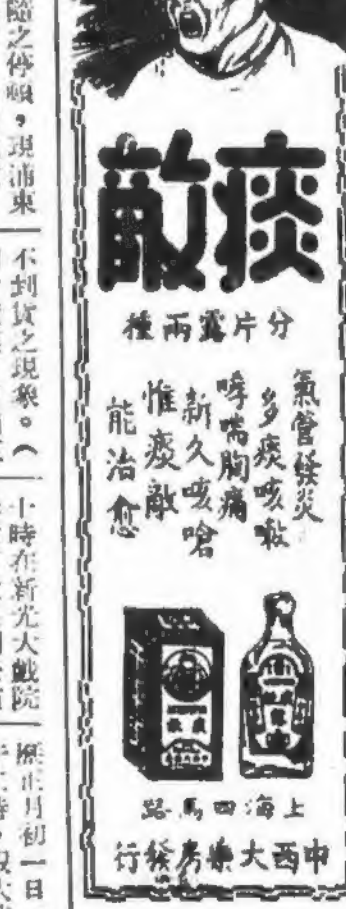 痰敵
分片露兩種
氣管發炎
多痰咳嗽
哮喘胸痛
新久咳嗆
惟痰敵
能治愈
上海四馬路
中西大藥房發行
隨之停頓，現浦東
不到貨之現象。（
十時在新光大戲院
正月初一日